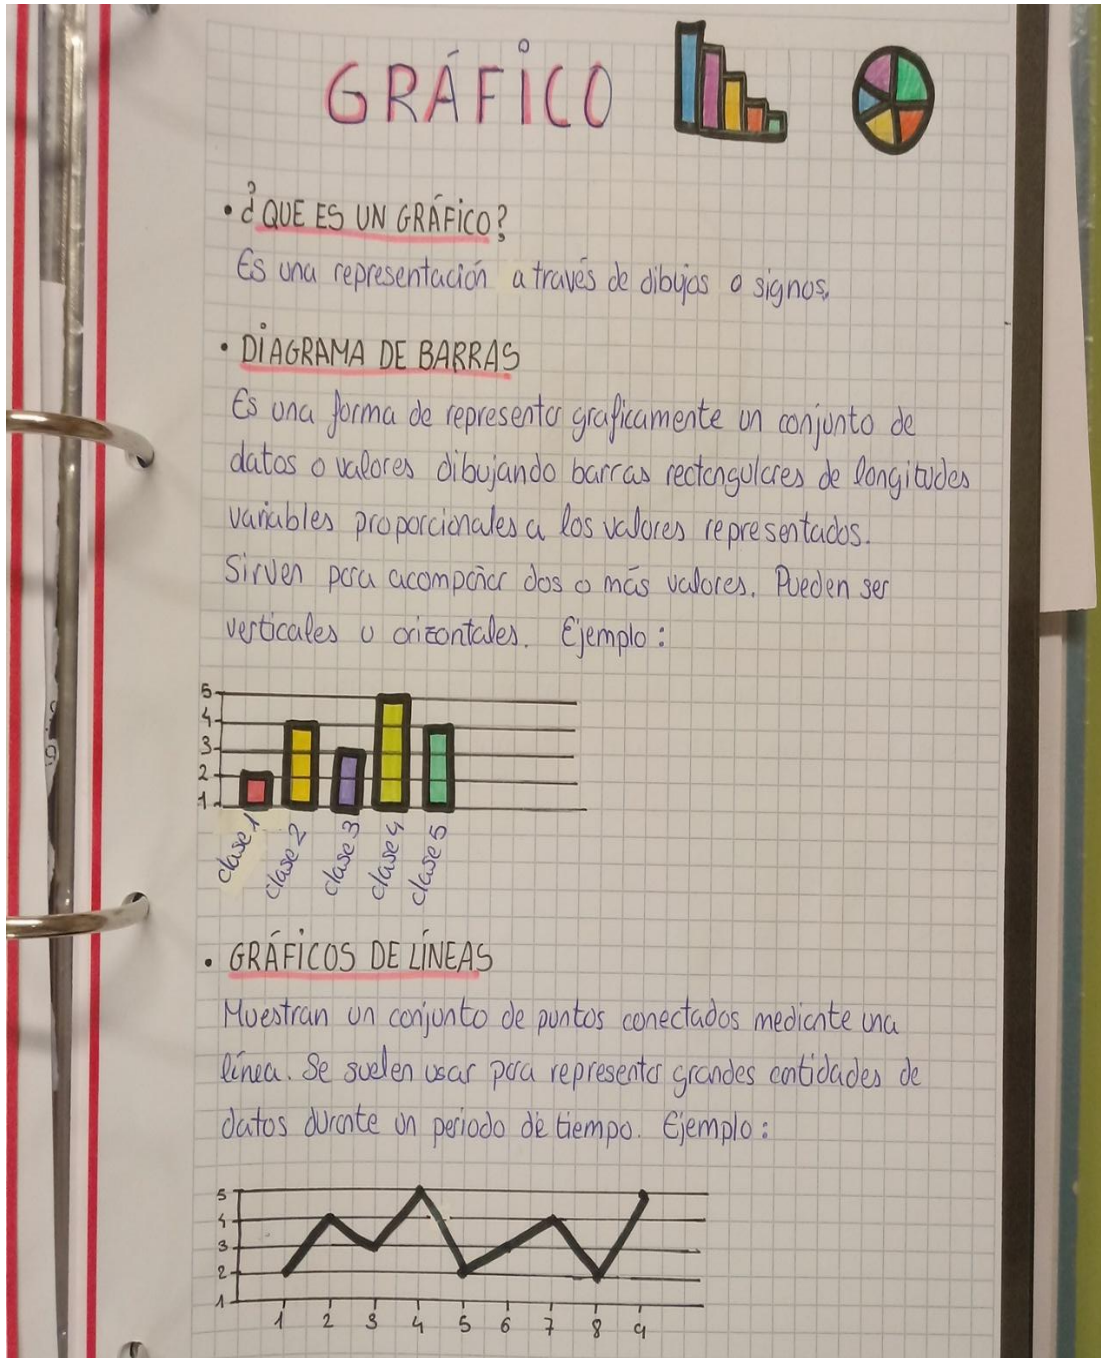 GRÁFICO
• ¿QUE ES UN GRÁFICO?
Es una representación a través de dibujos o signos.
• DIAGRAMA DE BARRAS
Es una forma de representar graficamente un conjunto de
datos o valores dibujando barras rectangulares de longitudes
variables proporcionales a los valores representados.
Sirven para acompañar dos o más valores. Pueden ser
verticales u orizontales. Ejemplo:
5
4
3
2
1
clase 1 clase 2 clase 3 clase 4 clase 5
• GRÁFICOS DE LÍNEAS
Muestran un conjunto de puntos conectados mediante una
línea. Se suelen usar para representar grandes cantidades de
datos durante un periodo de tiempo. Ejemplo:
5
4
3
2
1
1 2 3 4 5 6 7 8 9